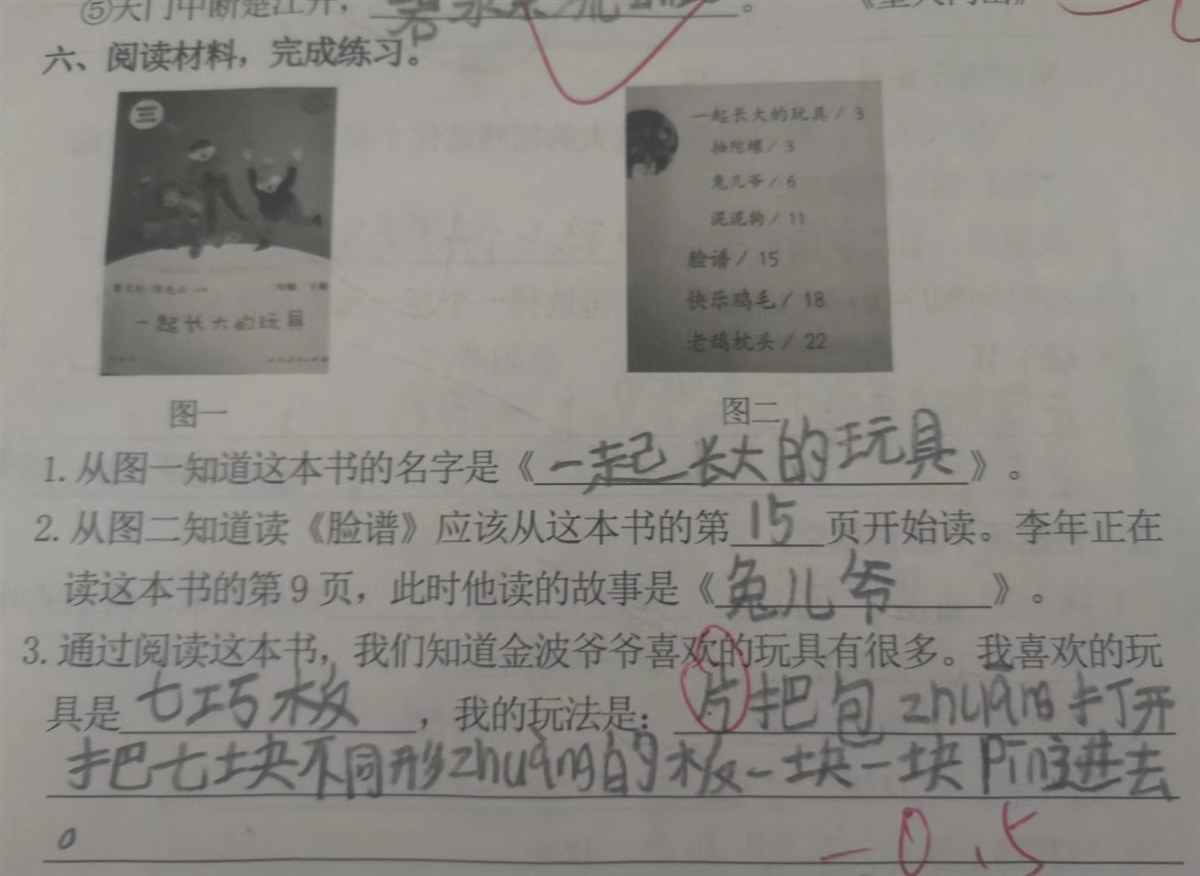 ⑤天门中断楚江开，碧水东流
六、阅读材料，完成练习。
一起长大的玩具
一起长大的玩具 / 3
抽陀螺 / 3
兔儿爷 / 6
泥泥狗 / 11
脸谱 / 15
快乐鸡毛 / 18
老鸹枕头 / 22
图一 图二
1. 从图一知道这本书的名字是《一起长大的玩具》。
2. 从图二知道读《脸谱》应该从这本书的第15页开始读。李年正在
读这本书的第9页，此时他读的故事是《兔儿爷》。
3. 通过阅读这本书，我们知道金波爷爷喜欢的玩具有很多。我喜欢的玩
具是七巧板，我的玩法是：片把包zhuāng打开
把七块不同形zhuàng的板一块一块Pīn进去
。
-0.5